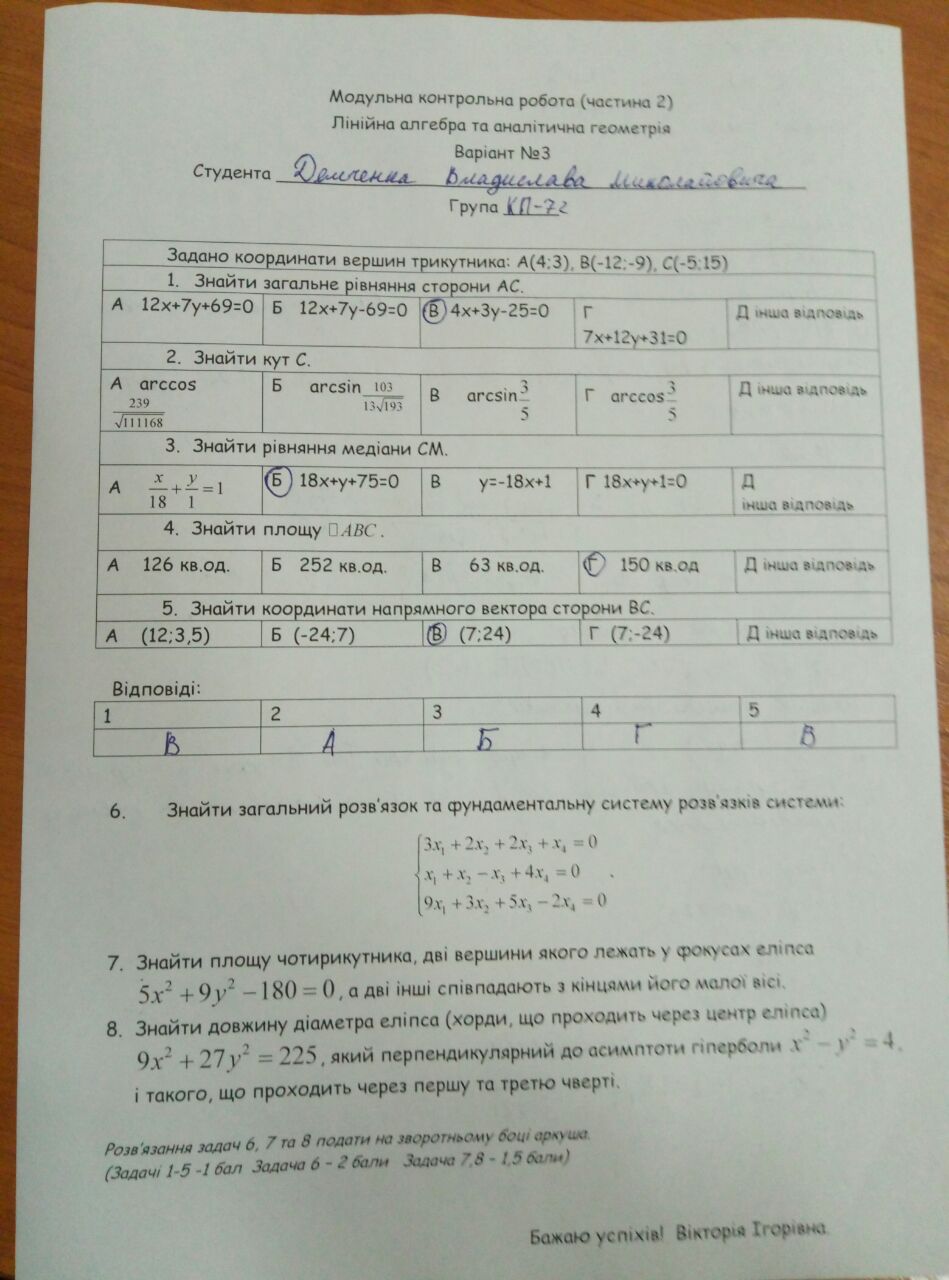 Модульна контрольна робота (частина 2)
Лінійна алгебра та аналітична геометрія
Варіант №3
Студента Демченка Владислава Миколайовича
Група КП-72
Задано координати вершин трикутника: А(4;3), В(-12;-9), С(-5;15)
1. Знайти загальне рівняння сторони АС.
А 12x+7y+69=0 Б 12x+7y-69=0 В 4x+3y-25=0 Г 7x+12y+31=0 Д інша відповідь
2. Знайти кут С.
А arccos 239/√111168 Б arcsin 103/13√193 В arcsin 3/5 Г arccos 3/5 Д інша відповідь
3. Знайти рівняння медіани СМ.
А x/18 + y/1 = 1 Б 18x+y+75=0 В y=-18x+1 Г 18x+y+1=0 Д інша відповідь
4. Знайти площу □ABC.
А 126 кв.од. Б 252 кв.од. В 63 кв.од. Г 150 кв.од Д інша відповідь
5. Знайти координати напрямного вектора сторони ВС.
А (12;3,5) Б (-24;7) В (7;24) Г (7;-24) Д інша відповідь
Відповіді:
1 2 3 4 5
В А Б Г В
6. Знайти загальний розв'язок та фундаментальну систему розв'язків системи:
3x₁ + 2x₂ + 2x₃ + x₄ = 0
x₁ + x₂ − x₃ + 4x₄ = 0 .
9x₁ + 3x₂ + 5x₃ − 2x₄ = 0
7. Знайти площу чотирикутника, дві вершини якого лежать у фокусах еліпса
5x² + 9y² − 180 = 0, а дві інші співпадають з кінцями його малої вісі.
8. Знайти довжину діаметра еліпса (хорди, що проходить через центр еліпса)
9x² + 27y² = 225, який перпендикулярний до асимптоти гіперболи x² − y² = 4,
і такого, що проходить через першу та третю чверті.
Розв'язання задач 6, 7 та 8 подати на зворотньому боці аркуша.
(Задачі 1-5 -1 бал Задача 6 - 2 бали Задача 7,8 - 1,5 бали)
Бажаю успіхів! Вікторія Ігорівна.